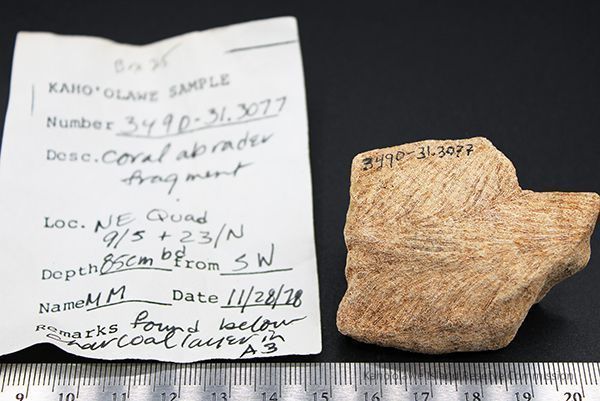 Box 25
KAHO'OLAWE SAMPLE
Number 3490-31.3077
Desc. Coral abrader
fragment
Loc. NE Quad
9/5 + 23/N
Depth 85cm bd from SW
Name MM Date 11/28/78
Remarks found below
charcoal layer in
A3
3490-31.3077
9 10 11 12 13 14 15 16 17 18 19 20